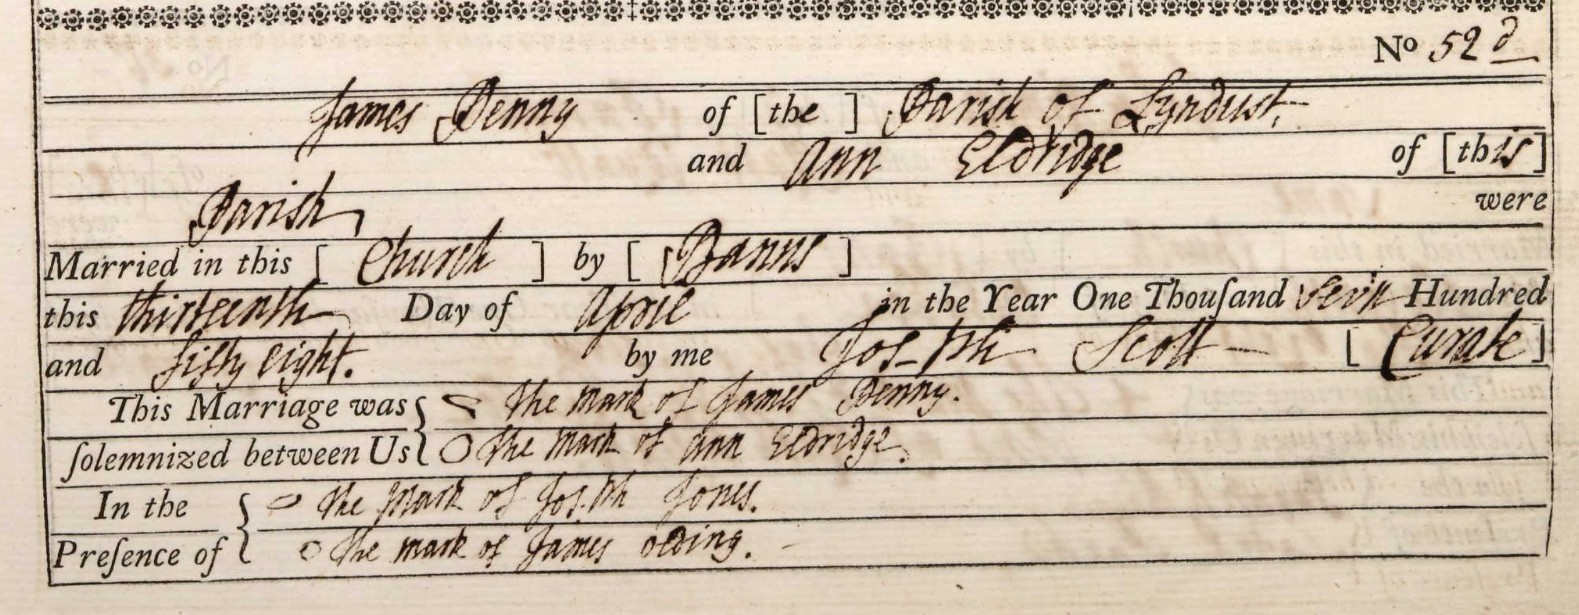 No 52d
James Denny of [the ] Parish of Lyndust,
and Ann Eldridge of [this]
Parish were
Married in this [ Church ] by [ Banns ]
this thirteenth Day of April in the Year One Thouſand Seven Hundred
and fifty eight. by me Joseph Scott [ Curate ]
This Marriage was { the mark of James Denny.
ſolemnized between Us { O the mark of Ann Eldridge.
In the { the mark of Joseph Jones.
Preſence of { O the mark of James olding.